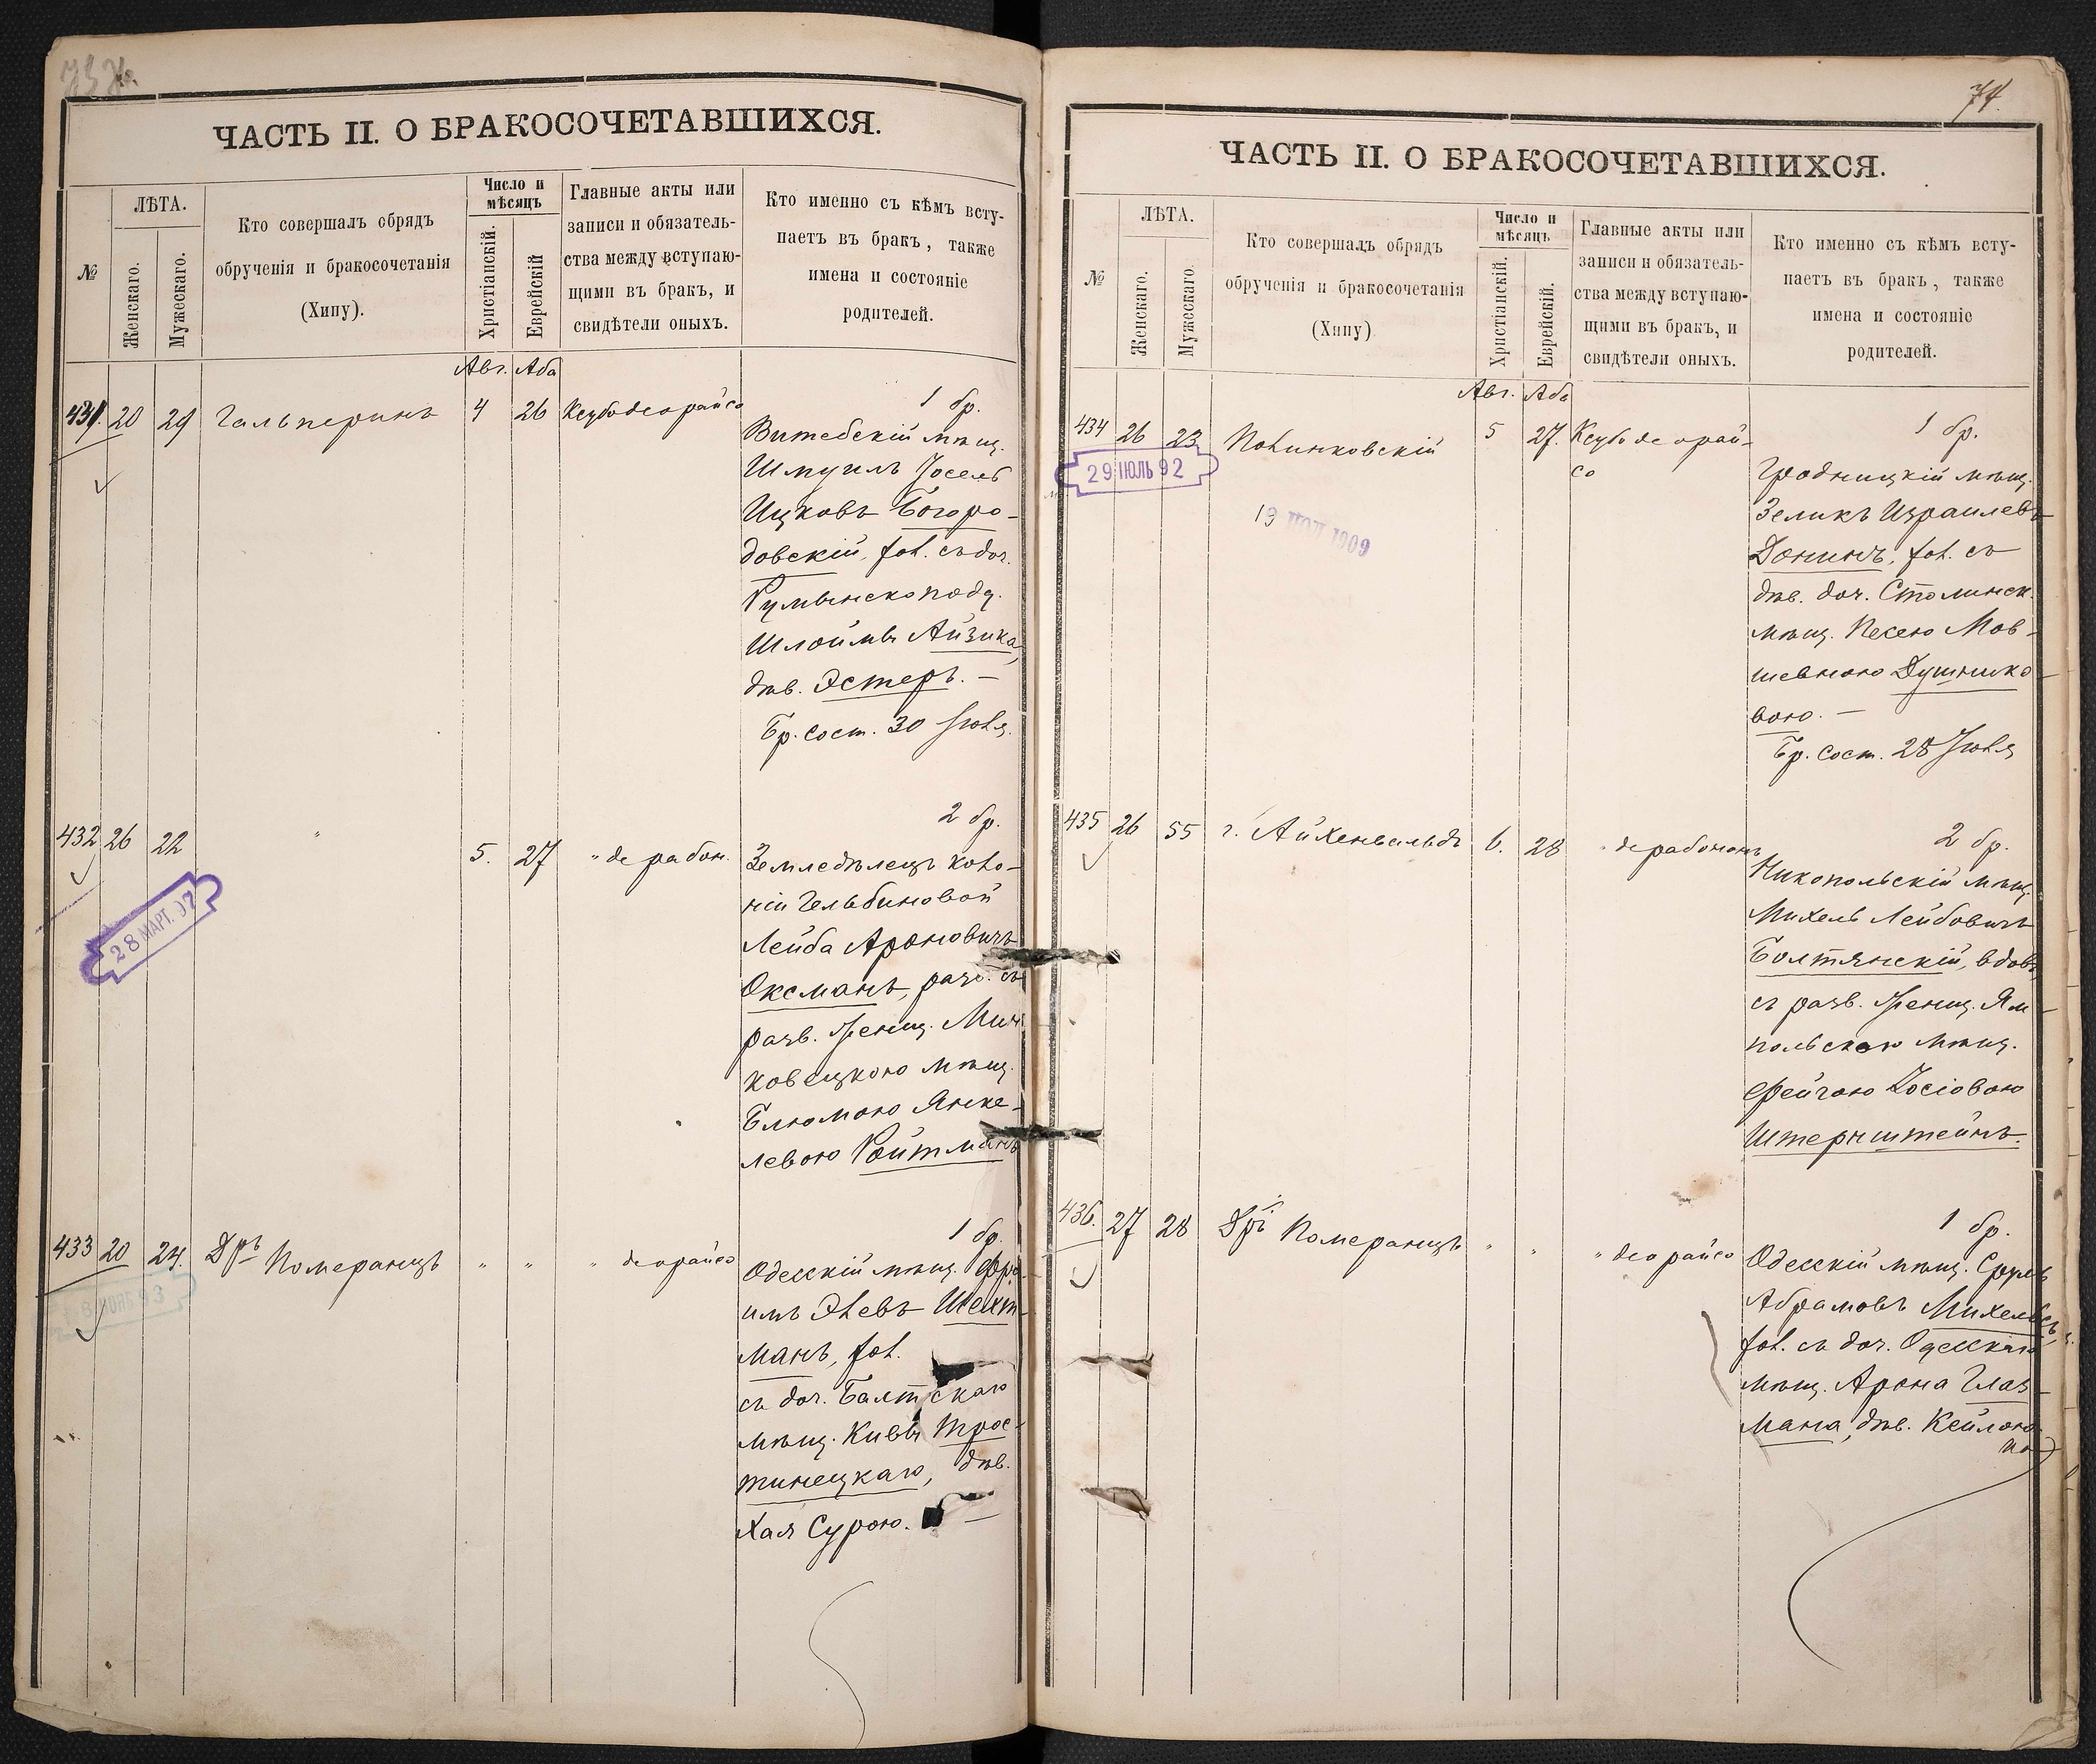 ЧАСТЬ II. О БРАКОСОЧЕТАВШИХСЯ.
№
ЛѢТА.
Женскаго.
Мужескаго.
Кто совершалъ обрядъ
обрученія и бракосочетанія
(Хипу).
Число и
мѣсяцъ
Христіанскій.
Еврейскій
Главные акты или
записи и обязатель-
ства между вступаю-
щими въ бракъ, и
свидѣтели оныхъ.
Кто именно съ кѣмъ всту-
паетъ въ бракъ, также
имена и состояніе
родителей.
Авг. Аба
431. 20 29 Гальперинъ 4 26 Ксубодеорайсо
1 бр.
Витебскій мѣщ.
Шмуилъ Іосель
Ицковъ Богоро-
довскій, хол. съ доч.
Румынскопод.
Шлоймы Айзика,
дѣв. Эстеръ. —
Бр. сост. 30 Іюля.
432 26 22 " 5. 27 " де рабон.
2 бр.
Земледѣлецъ коло-
ніи Гельбиновой
Лейба Ароновичъ
Оксманъ, разв. съ
разв. женщ. Мин
ковецкою мѣщ.
Блюмою Янке-
левою Ройтманъ
28 МАРТ.
433 20 24. Дръ Померанцъ " " " деорайсо
1 бр.
Одесскій мѣщ. Фро
имъ Элевъ Шехт-
манъ, хол.
съ доч. Балтскаго
мѣщ. Кивы Трос-
тинецкаго, дѣв.
Хая Сурою. —
74.
ЧАСТЬ II. О БРАКОСОЧЕТАВШИХСЯ.
№
ЛѢТА.
Женскаго.
Мужескаго.
Кто совершалъ обрядъ
обрученія и бракосочетанія
(Хипу)
Число и
мѣсяцъ
Христіанскій.
Еврейскій.
Главные акты или
записи и обязатель-
ства между вступаю-
щими въ бракъ, и
свидѣтели оныхъ.
Кто именно съ кѣмъ всту-
паетъ въ бракъ, также
имена и состояніе
родителей.
Авг. Аба
434 26 23 Полинковскій 5 27. Ксубо де орай-
со
29 ІЮЛЬ 92
1909
1 бр.
Гродницкій мѣщ.
Зеликъ Израилевъ
Донинъ, хол. съ
дѣв. доч. Столинск.
мѣщ. Песею Мов-
шевною Душнико-
вою. —
Бр. сост. 28 Іюля
435 26 55 г. Айхенвальдъ 6. 28 " де рабононъ
2 бр.
Никопольскій мѣщ.
Михель Лейбовичъ
Болтянскій, вдов.
съ разв. женщ. Ям
польскою мѣщ.
Фейгою Іосіовою
Штернштейнъ.
436. 27 28 Дръ Померанцъ " " " деорайсо
1 бр.
Одесскій мѣщ. Сруль
Абрамовъ Михельсъ,
хол. съ доч. Одесскаго
мѣщ. Арона Глаз-
мана, дѣв. Кейлою